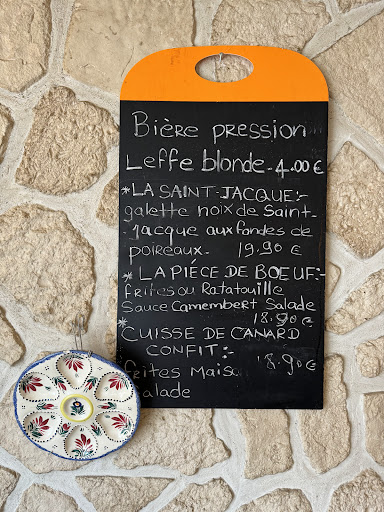 Bière pression
Leffe blonde - 4.00 €
* LA SAINT-JACQUE:-
galette noix de Saint-
Jacque aux fondes de
poireaux. 19.90 €
* LA PIÈCE DE BOEUF:-
frites ou Ratatouille
Sauce Camembert Salade
18.90 €
* CUISSE DE CANARD
CONFIT:-
frites Maison 18.90 €
salade